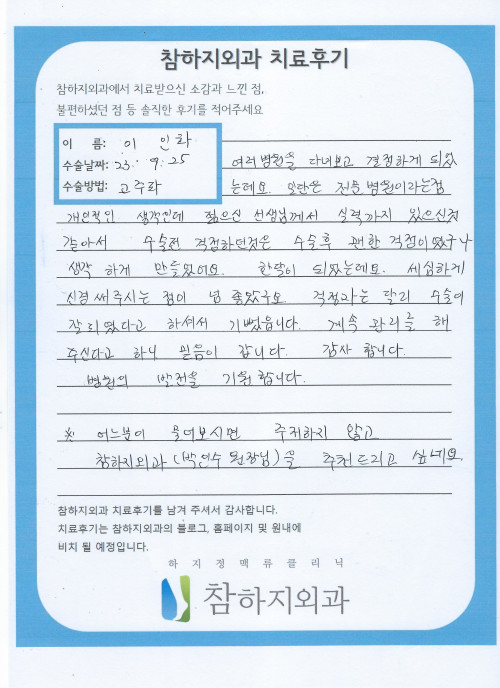 참하지외과 치료후기
참하지외과에서 치료받으신 소감과 느낀 점,
불편하셨던 점 등 솔직한 후기를 적어주세요
이 름: 이 인화
수술날짜: 23. 9. 25
수술방법: 고주파
여러병원을 다녀보고 결정하게 되었
는데요. 일단은 전문병원이라는점
개인적인 생각인데 젊으신 선생님께서 실력까지 있으신것
같아서 수술전 걱정하던것은 수술후 괜한 걱정이였구나
생각 하게 만들었어요. 한달이 되었는데요. 세심하게
신경써주시는 점이 넘 좋았구요 걱정과는 달리 수술이
잘되였다고 하셔서 기뻤습니다. 계속 관리를 해
주신다고 하니 믿음이 갑니다. 감사 합니다.
병원의 발전을 기원합니다.
※ 어느분이 물어보시면 주저하지 않고
참하지외과(박인수 원장님)을 추천드리고 싶네요.
참하지외과 치료후기를 남겨 주셔서 감사합니다.
치료후기는 참하지외과의 블로그, 홈페이지 및 원내에
비치 될 예정입니다.
하지정맥류클리닉
참하지외과